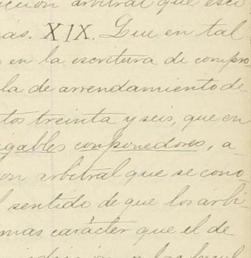 cción arbitral que esci
ias. XIX. Que en tal
en la escritura de compro
la de arrendamiento de
tos treinta y seis, que en
gables componedores, a
on arbitral que se cono
l sentido de que los árbi
mas carácter que el de